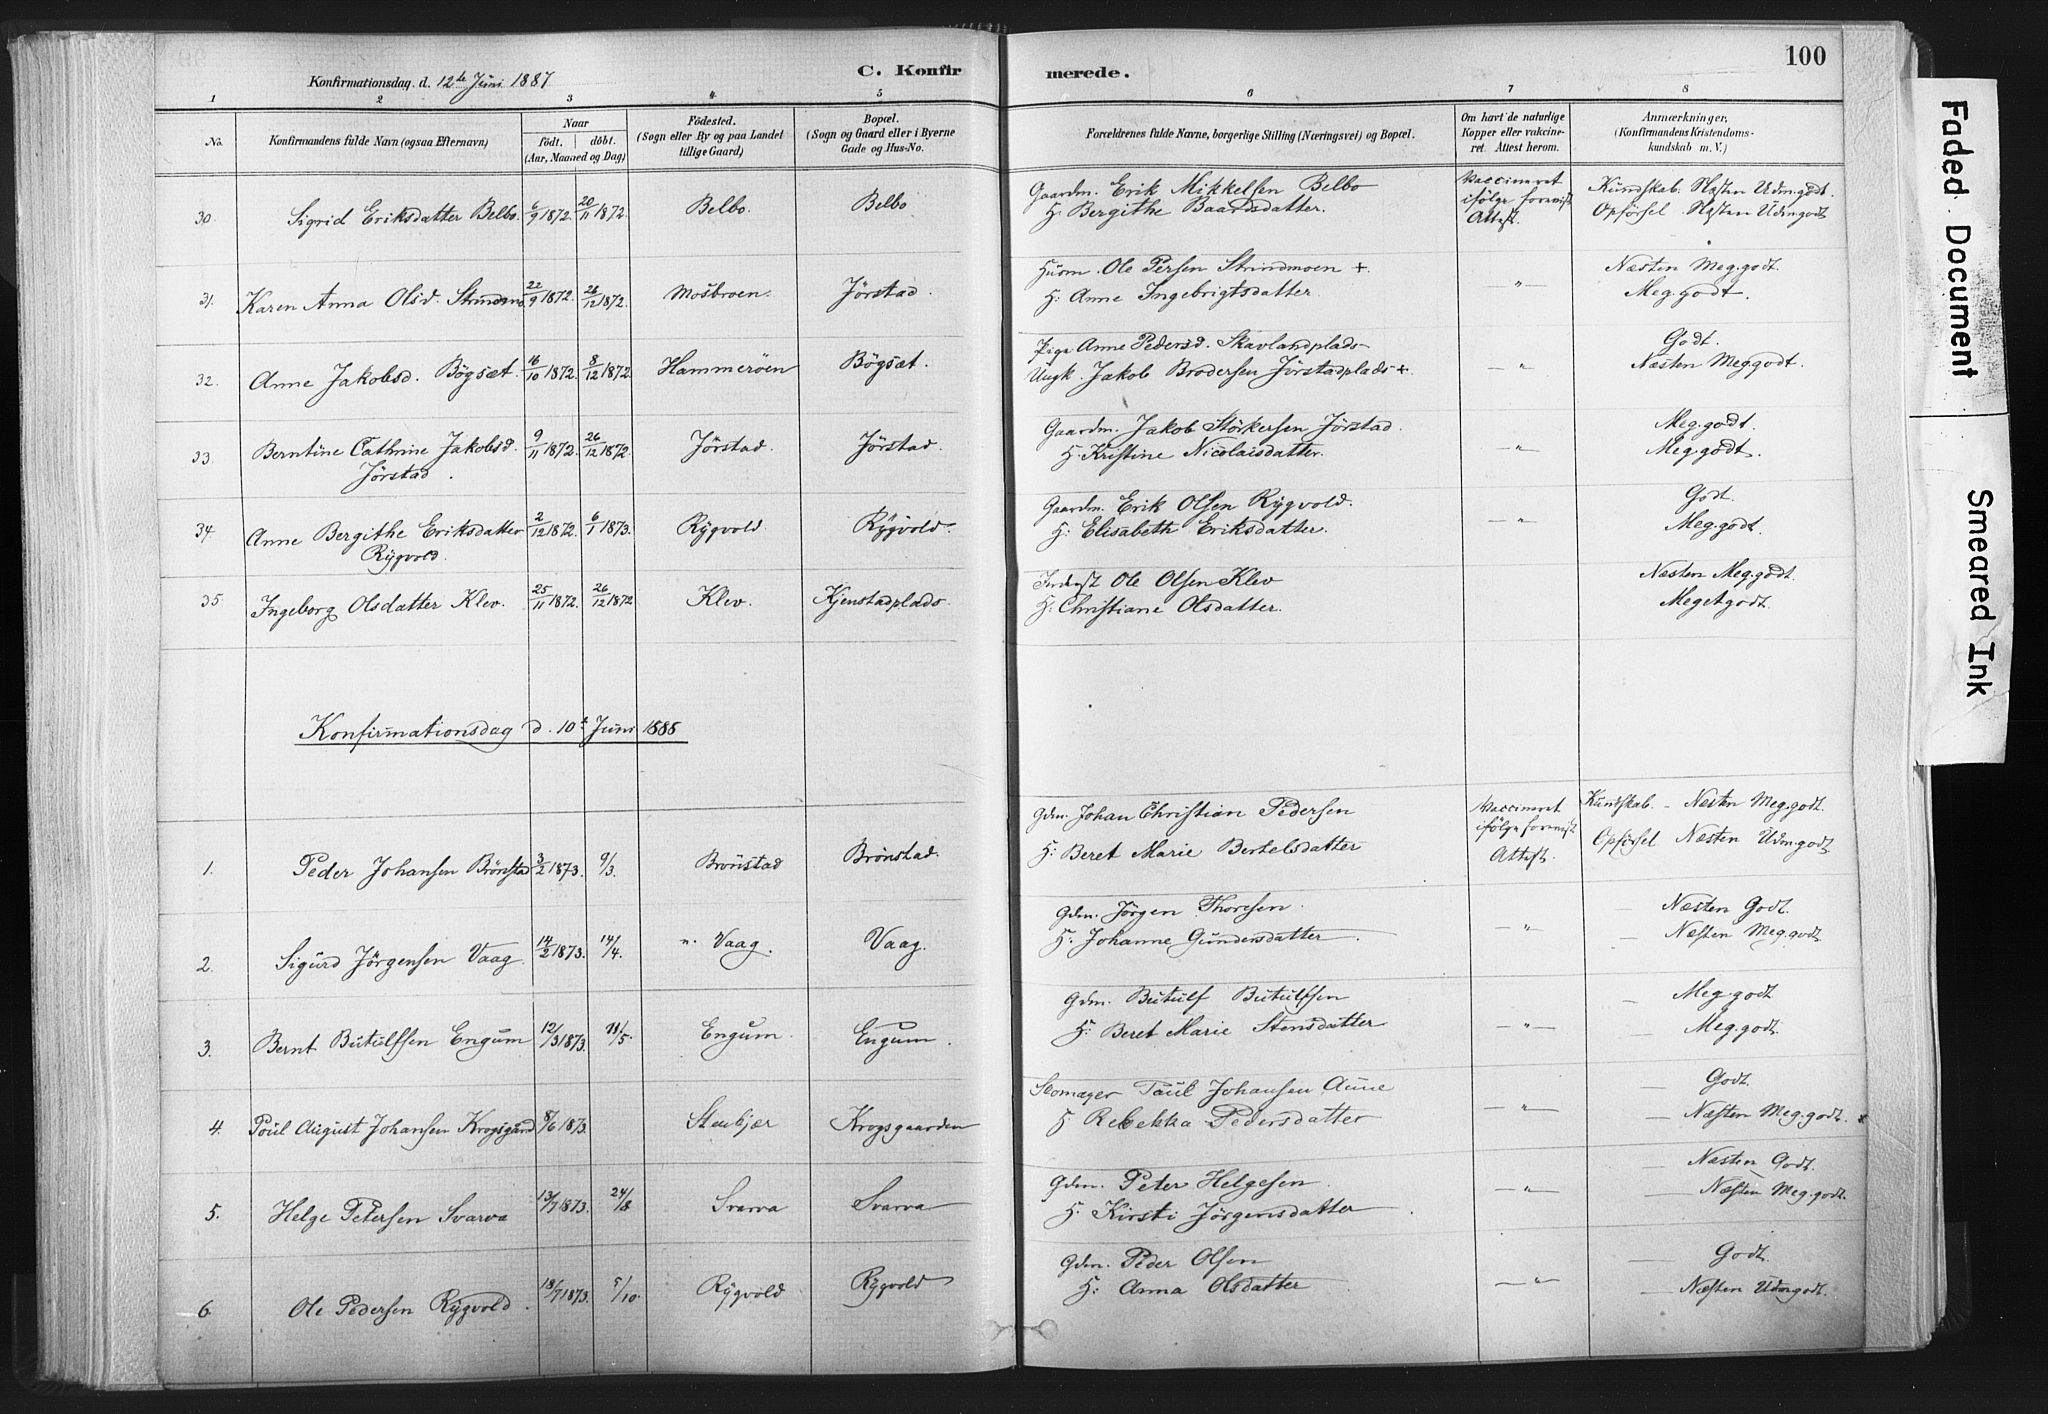 100
Konfirmationsdag. d. 12te Juni 1887
C. Konfirmerede.
1 2 3 4 5 6 7 8
No. Konfirmandens fulde Navn (ogsaa Efternavn) Naar født. døbt. (Aar, Maaned og Dag) Fødested. (Sogn eller By og paa Landet tillige Gaard) Bopæl. (Sogn og Gaard eller i Byerne Gade og Hus-No. Forældrenes fulde Navne, borgerlige Stilling (Næringsvei) og Bopæl. Om havt de naturlige Kopper eller vakcineret. Attest herom. Anmærkninger, (Konfirmandens Kristendomskundskab m. V.)
30. Sigrid Eriksdatter Belbo. 6/9 1872. 20/11 1872. Belbo. Belbo Gaardm. Erik Mikkelsen Belbo
H: Bergithe Baardsdatter. Vaccineret ifölge forevist Attest. Kundskab. Næsten Udm.godt.
Opförsel Næsten Udm.godt
31. Karen Anna Olsd. Strindmo 22/9 1872. 26/12 1872. Mosbroen. Jörstad. Husm. Ole Persen Strindmoen +.
H: Anne Ingebrigtsdatter. —"— Næsten Meg.godt.
Meg.godt.
32. Anne Jakobsd. Bögsæt. 16/10 1872. 8/12 1872. Hammeröen Bögsæt. Pige Anne Pedersd. Skavlandplads
Ungk. Jakob Brodersen Jörstadplads + —"— Godt.
Næsten Meg.godt.
33. Berntine Cathrine Jakobsd. Jörstad. 9/11 1872. 26/12 1872. Jörstad. Jörstad. Gaardm. Jakob Störkersen Jörstad.
H: Kristine Nicolaisdatter. —"— Meg.godt.
Meg.godt.
34. Anne Bergithe Eriksdatter Rygvold. 2/12 1872. 6/1 1873. Rygvold Rygvold. Gaardm. Erik Olsen Rygvold.
H: Elisabeth Eriksdatter. —"— Godt.
Meg.godt.
35. Ingeborg Olsdatter Klev. 25/11 1872. 26/12 1872 Klev. Kjenstadplads. Inderst Ole Olsen Klev
H: Christiane Olsdatter. Næsten Meg.godt.
Meget godt.
Konfirmationsdag d. 10de Juni 1888
1. Peder Johansen Brönstad 3/2 1873. 9/3. Brönstad Brönstad. Gdm. Johan Christian Pedersen
H: Beret Marie Bertelsdatter Vaccineret ifölge forevist Attest. Kundskab. - Næsten Meg.godt.
Opförsel Næsten Udm.godt.
2. Sigurd Jörgensen Vaag. 14/2 1873. 14/4. n. Vaag. Vaag. Gdm. Jörgen Thoresen.
H: Johanne Gundersdatter. —"— — Næsten Godt.
— Næsten Meg.godt
3. Bernt Butulfsen Engum 12/3 1873. 11/5. Engum. Engum. Gdm. Butulf Butulfsen
H: Beret Marie Stensdatter —"— — Meg.godt
— Meg.godt.
4. Poul August Johansen Krogsgård 8/6 1873. Stenkjær Krogsgaarden Skomager Paul Johansen Aune
H Rebekka Pedersdatter —"— — Godt.
— Næsten Meg.godt.
5. Helge Petersen Svarva 13/7 1873. 24/8 Svarva Svarva Gdm. Peter Helgesen.
H: Kirsti Jörgensdatter. —"— Næsten Godt.
— Næsten Meg.godt.
6 Ole Pedersen Rygvold. 18/7 1873. 5/10. Rygvold Rygvold Gdm. Peder Olsen
H: Anna Olsdatter —"— — Godt.
— Næsten Udm.godt.
Faded Document
Smeared Ink